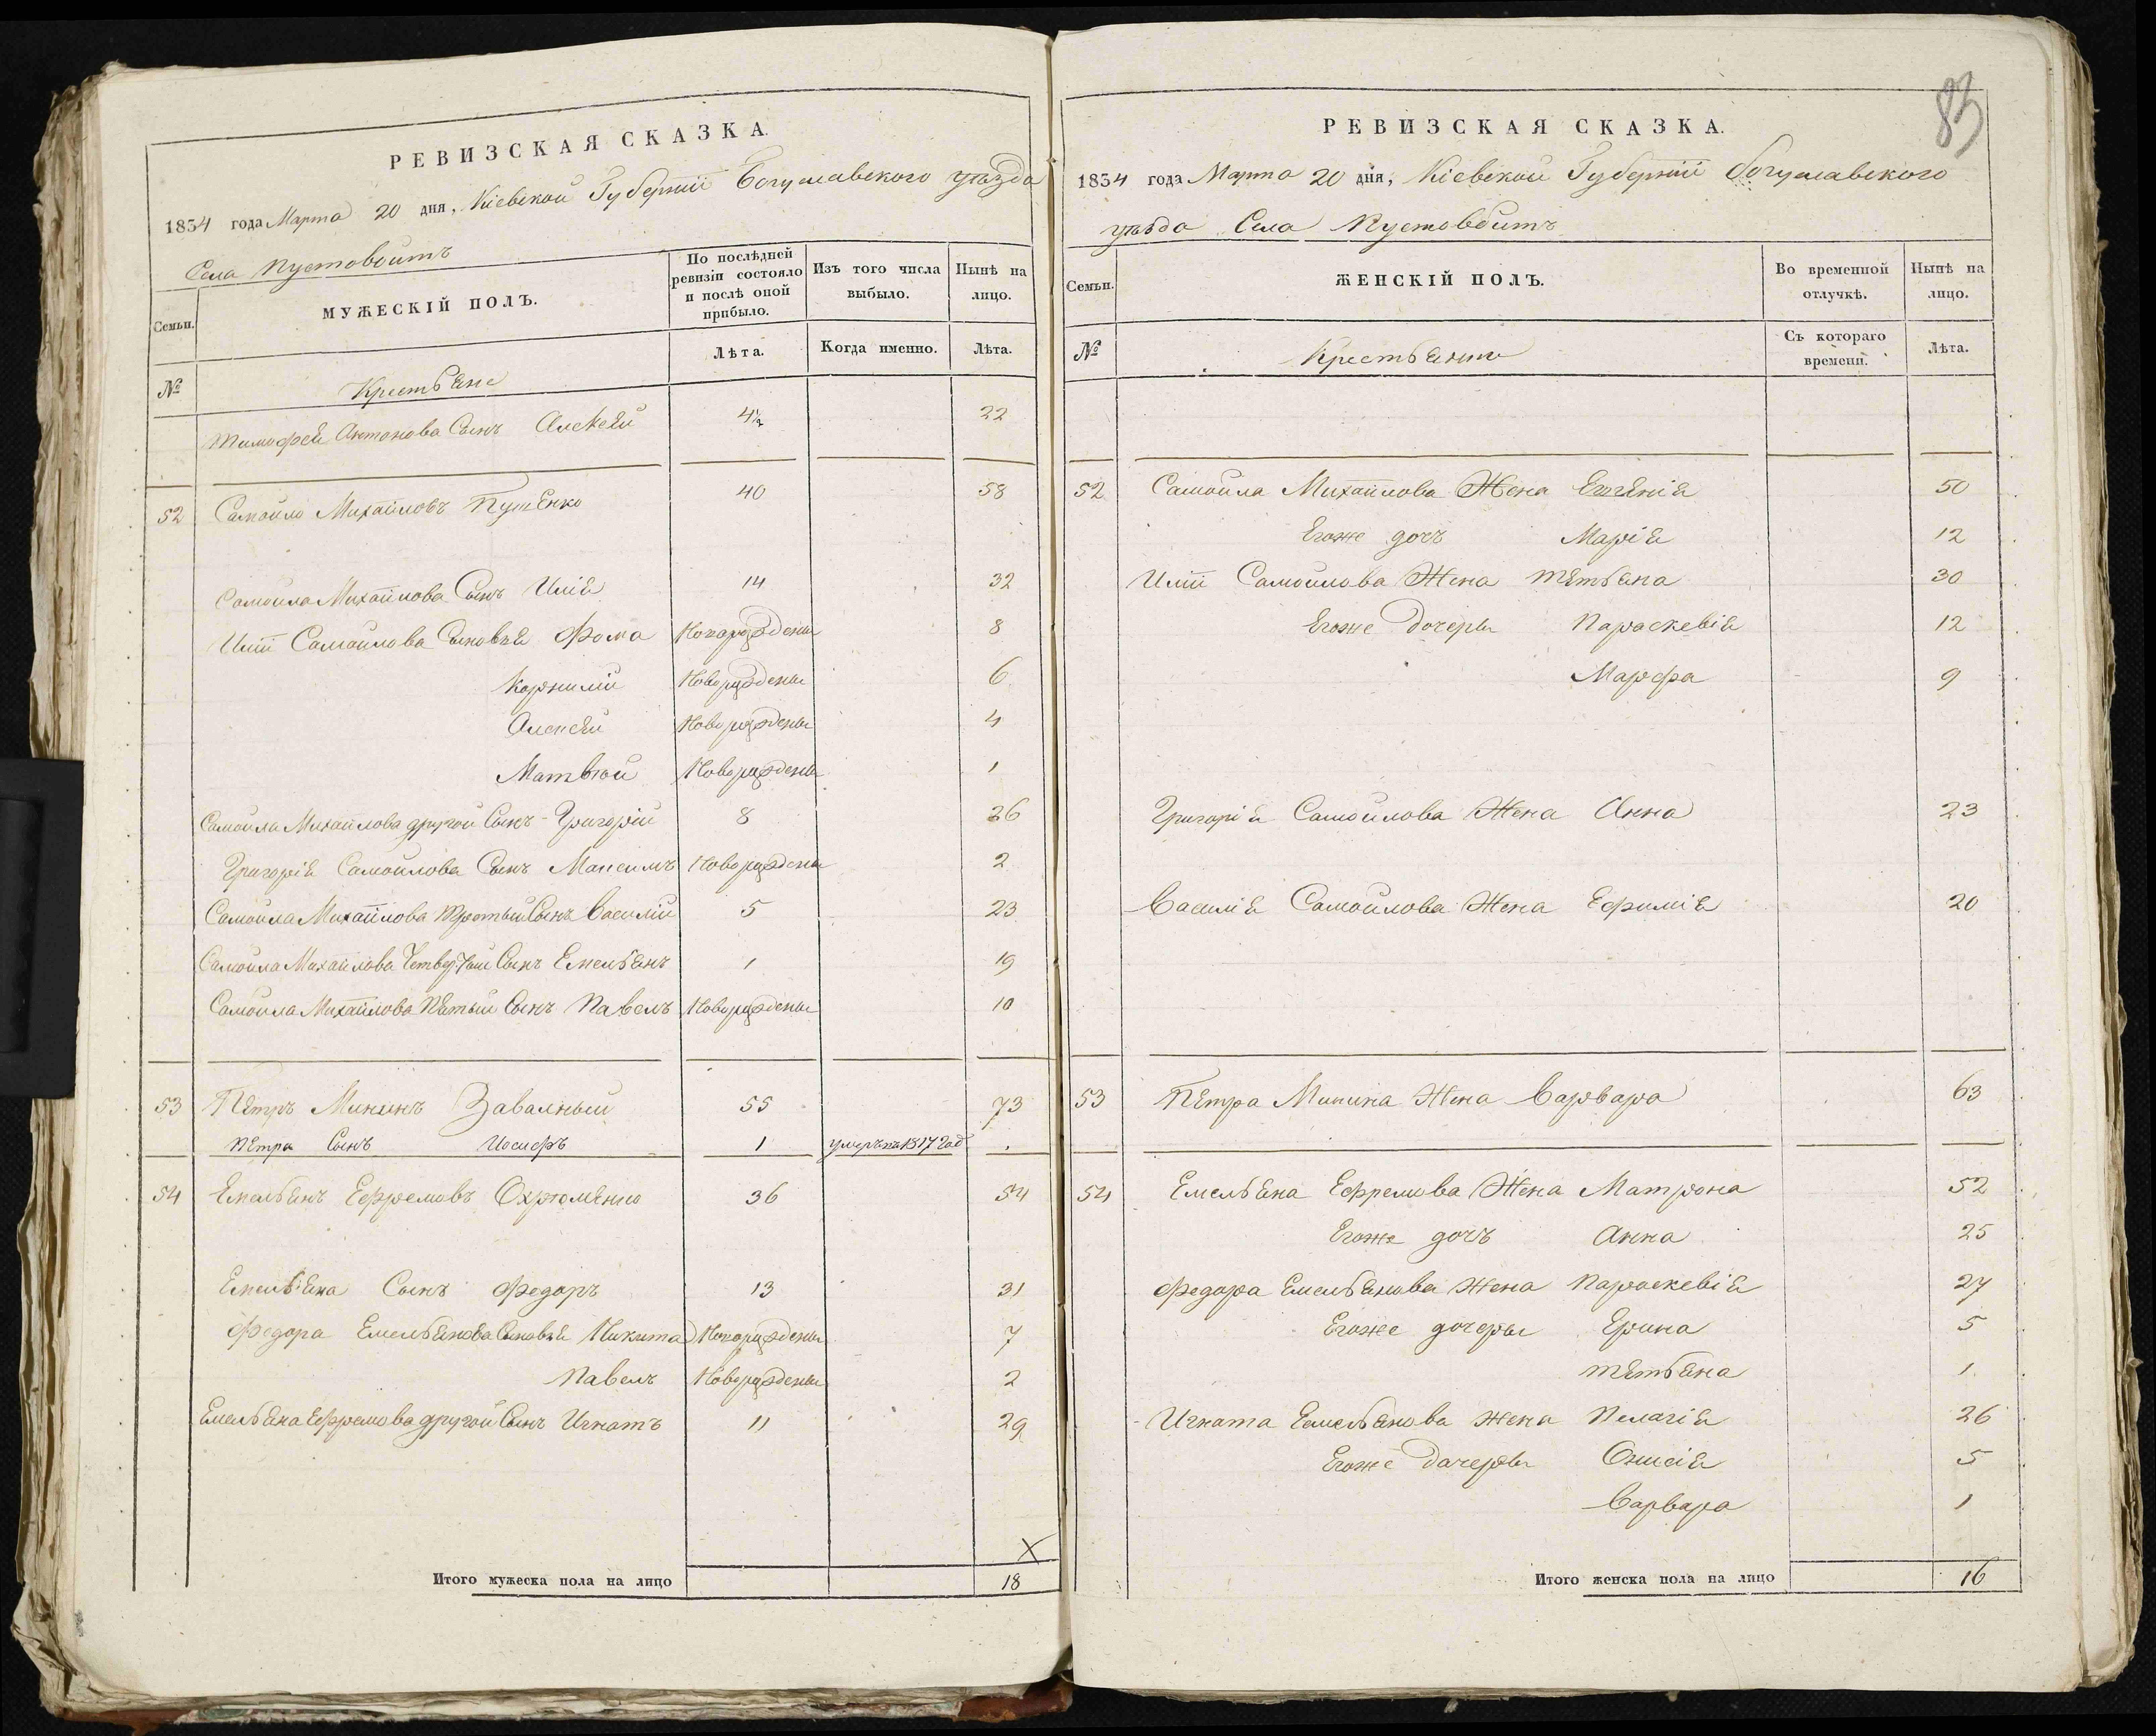 РЕВИЗСКАЯ СКАЗКА.
1834 года Марта 20 дня, Кіевской Губерніи Богуславского уѣзда
Села Пустовойтъ
Семьи.
МУЖЕСКІЙ ПОЛЪ.
По послѣдней ревизіи состояло и послѣ оной прибыло.
Изъ того числа выбыло.
Нынѣ на лицо.
№
Лѣта.
Когда именно.
Лѣта.
Крестьяне
Тимофея Антонова Сынъ Алексей 4½ 22
52 Самойло Михайловъ 40 58
Самойла Михайлова Сынъ Илія 14 32
Иліи Самойлова Сыновья Фома Новорожденъ 8
Корнилій Новорожденъ 6
Алексей Новорожденъ 4
Матвѣй Новорожденъ 1
Самойла Михайлова другой Сынъ Григорій 8 26
Григорія Самойлова Сынъ Максимъ Новорожденъ 2
Самойла Михайлова третый Сынъ Василій 5 23
Самойла Михайлова Четвертый Сынъ Емельянъ 1 19
Самойла Михайлова Пятый Сынъ Павелъ Новорожденъ 10
53 Пётръ Мининъ Завалный 55 73
Пётра Сынъ Иосифъ 1 умеръ 1817 год
54 Емельянъ Ефремовъ Охрюменко 36 54
Емельяна Сынъ Федоръ 13 31
Федора Емельянова Сыновья Никита Новорожденъ 7
Павелъ Новорожденъ 2
Емельяна Ефремова другой Сынъ Игнатъ 11 29
Х
Итого мужеска пола на лицо 18
83
РЕВИЗСКАЯ СКАЗКА.
1834 года Марта 20 дня, Кіевской Губерніи Богуславского
уѣзда Села Пустовойтъ
Семьи.
ЖЕНСКІЙ ПОЛЪ.
Во временной отлучкѣ.
Нынѣ на лицо.
№
Крестьянки
Съ котораго времени.
Лѣта.
52 Самойла Михайлова Жена 50
Егоже дочь Марія 12
Иліи Самойлова Жена Тятьяна 30
Егоже Дочеры Параскевія 12
Марфа 9
Григорія Самойлова Жена Анна 23
Василія Самойлова Жена Ефимія 20
53 Пётра Минина Жена Варвара 63
54 Емельяна Ефремова Жена Матрона 52
Егоже дочь Анна 25
Федора Емельянова Жена Параскевія 27
Егоже дочеры Ерина 5
Тятьяна 1
Игната Емельянова жена Пелагія 26
Егоже Дочеры Онисія 5
Варвара 1
Итого женска пола на лицо 16